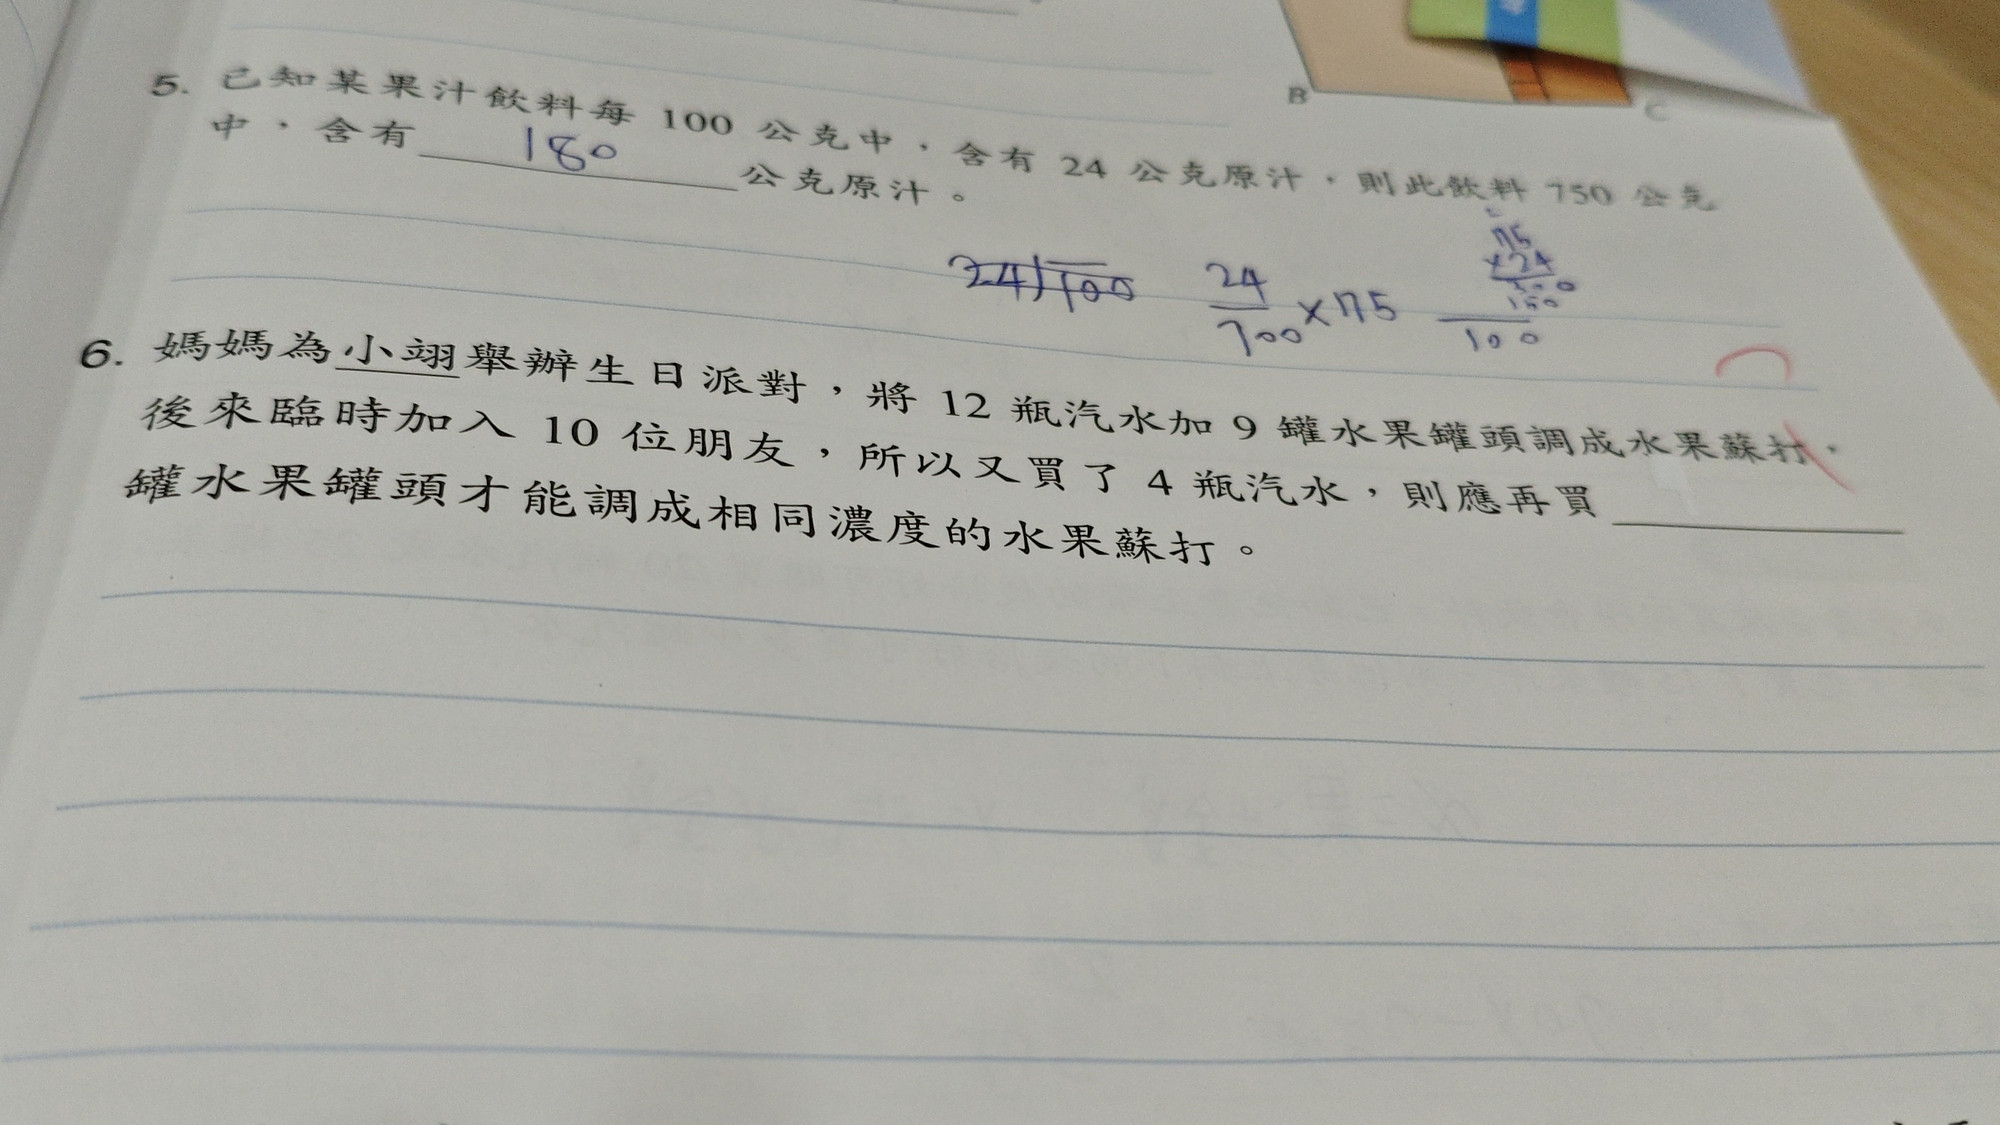 B
C
5. 已知某果汁飲料每 100 公克中，含有 24 公克原汁，則此飲料 750 公克
中，含有 180 公克原汁。
24)100
24/100 × 75
75
×24
300
150
100
6. 媽媽為小翊舉辦生日派對，將 12 瓶汽水加 9 罐水果罐頭調成水果蘇打，
後來臨時加入 10 位朋友，所以又買了 4 瓶汽水，則應再買
罐水果罐頭才能調成相同濃度的水果蘇打。